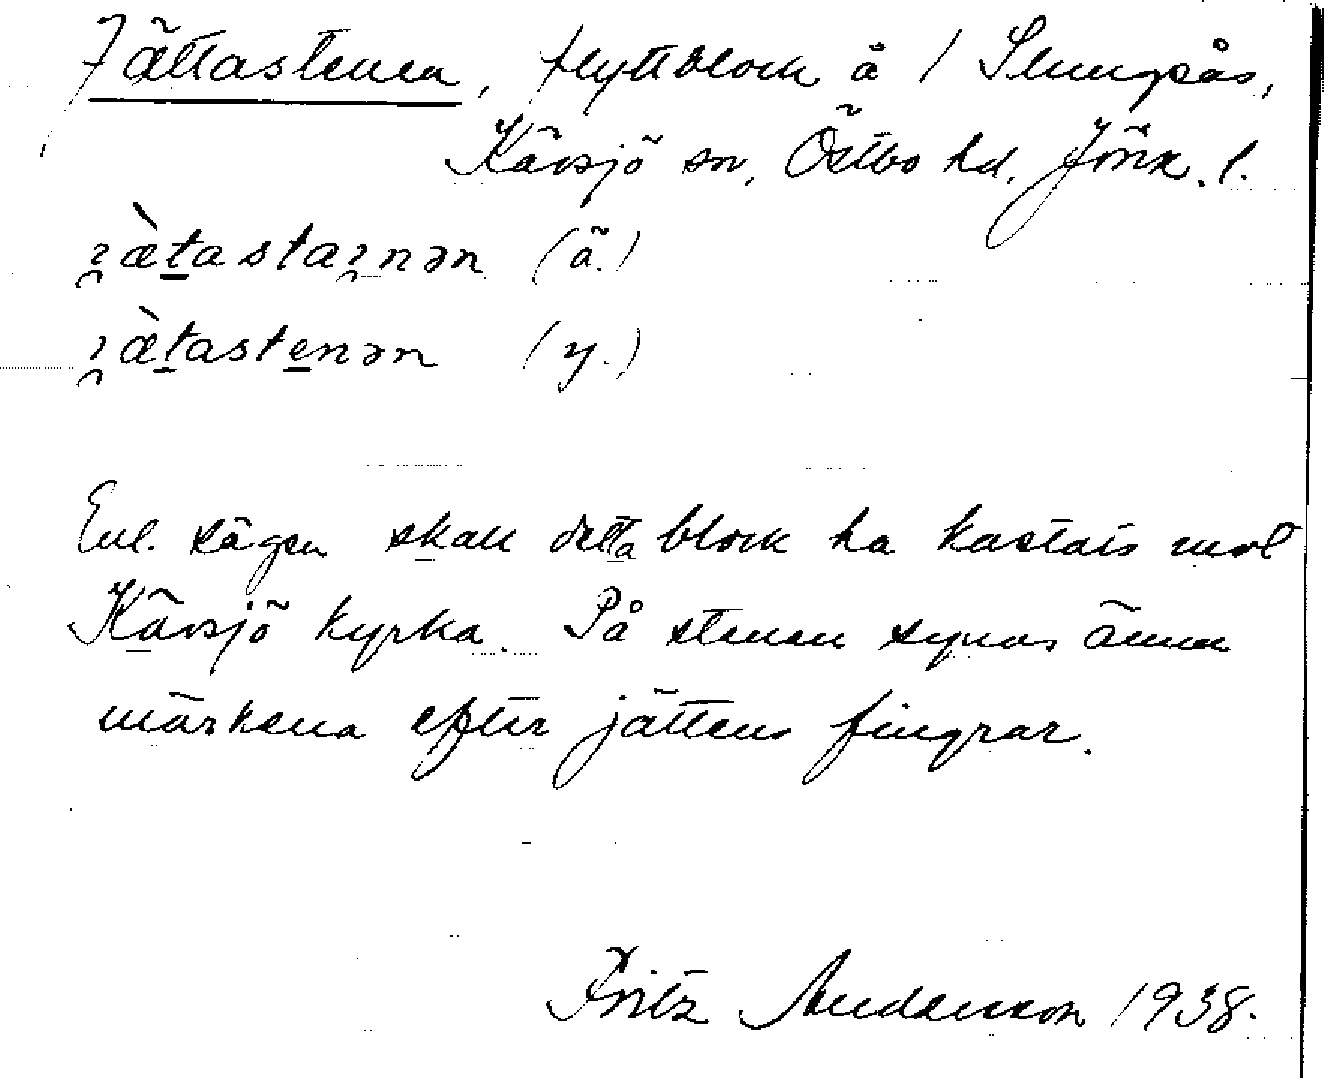 Jättastenen, flyttblock å 1 Slungsås,
Kävsjö sn, Östbo hd. Jönk. l.
(ä.)
(y.)
Enl. sägen skall detta block ha kastats mot
Kävsjö kyrka. På stenen synas ännu
märkena efter jättens fingrar.
Fritz Andersson 1938.